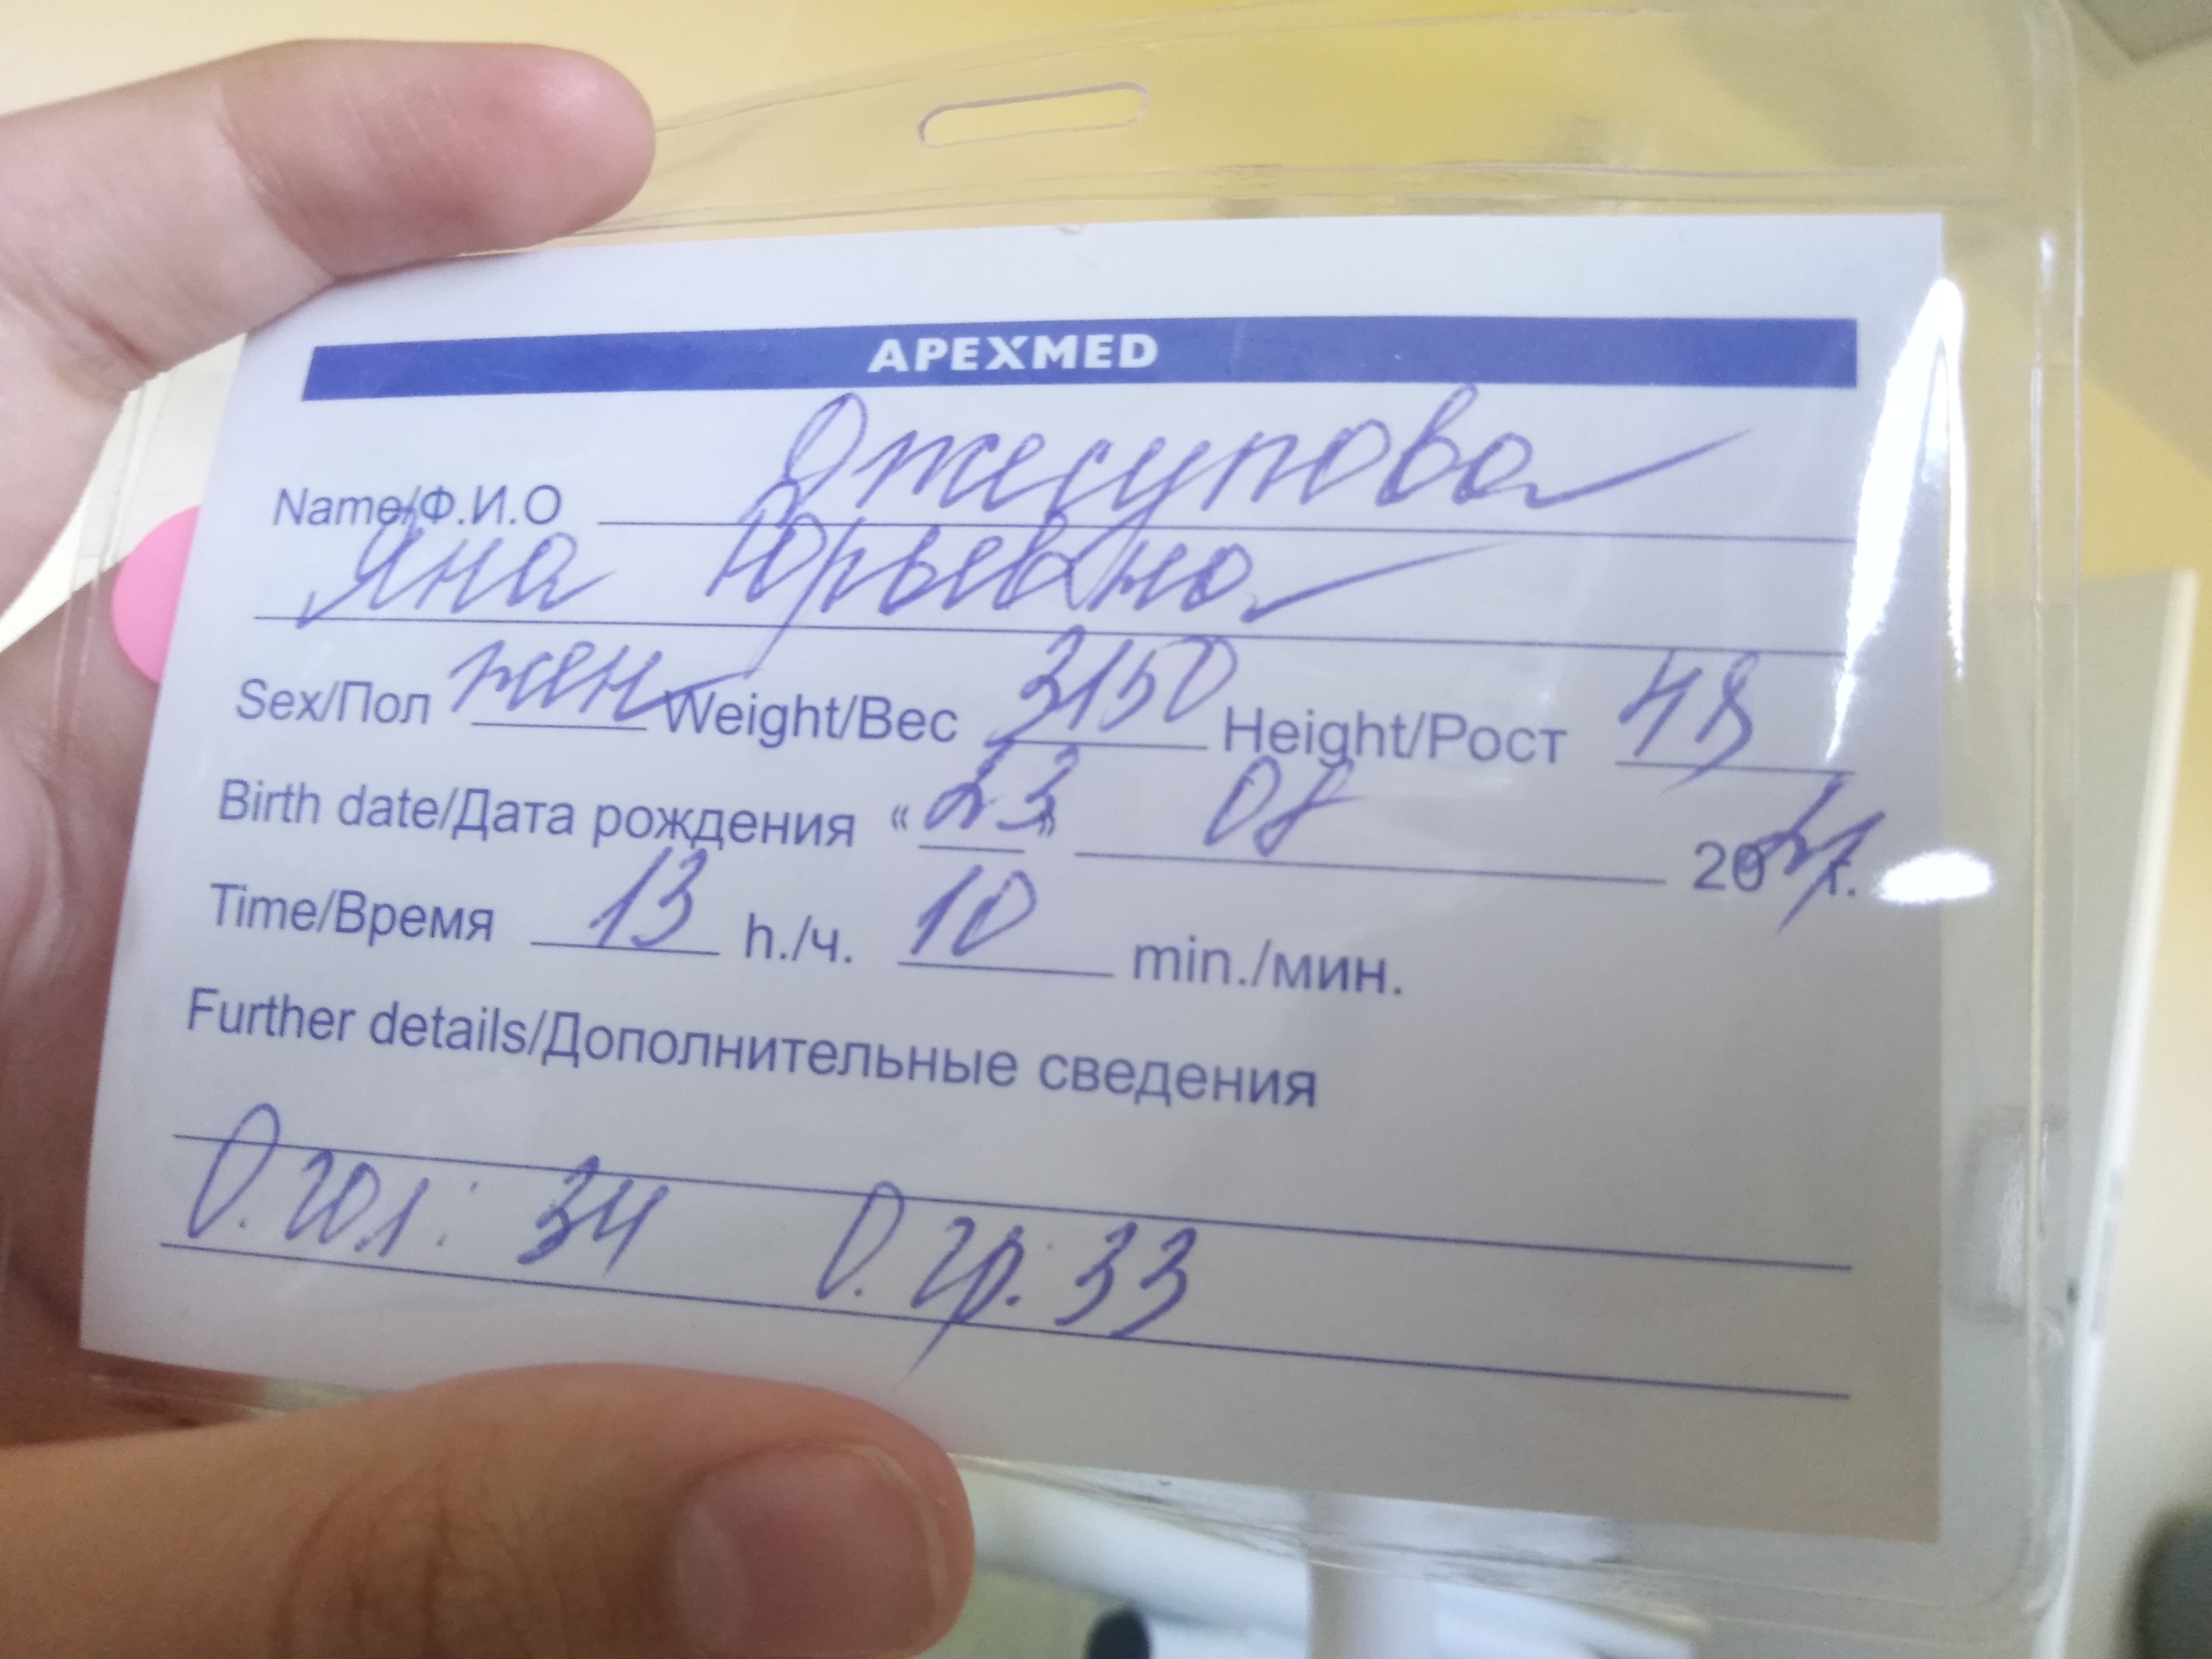 APEXMED
Name/Ф.И.О Джесупова
Яна Юрьевна
Sex/Пол жен Weight/Вес 3150 Height/Рост 48
Birth date/Дата рождения «23» 08 2021 г.
Time/Время 13 h./ч. 10 min./мин.
Further details/Дополнительные сведения
О. гол: 34 О. гр. 33